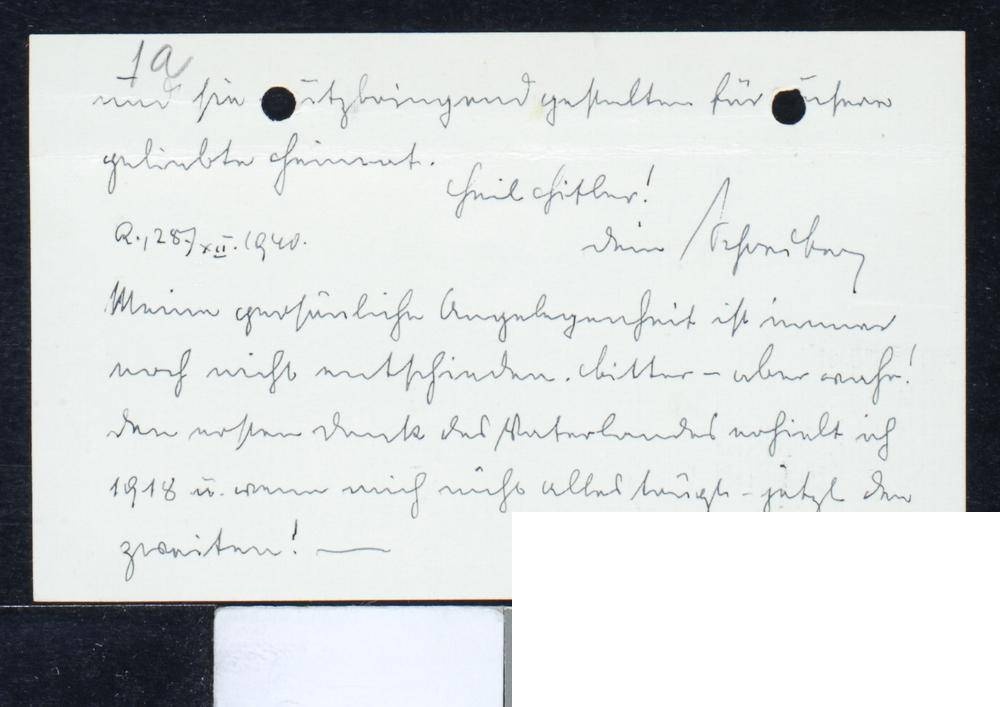 1a
und sie nützbringend gestalten für ünsere
geliebte Heimat.
Heil Hitler!
R., 28./XII. 1940.
Dein
Meine persönliche Angelegenheit ist immer
noch nicht entschieden. Bitter – aber wahr!
Den ersten Dank des Vaterlandes erhielt ich
1918 u. wenn mich nicht alles täuscht – jetzt den
zweiten! —